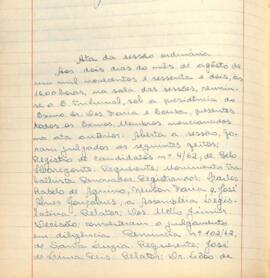 Ata da sessão ordinária
Aos dois dias do mês de agôsto de
um mil novecentos e sessenta e dois, às
16,00 horas, na sala das sessões, reuniu-
se o E. Tribunal, sob a presidência do
Exmo. Sr. Des. Faria e Sousa, presentes
todos os Exmos. Membros mencionados
na ata anterior. Aberta a sessão, fo-
ram julgados os seguintes feitos:
Registro de candidatos nº 4/62, de Belo
Horizonte. Requerente: Movimento Tra-
balhista Renovador. Registrandos: Carlos
de Aquino, Faria e José
Gonçalves, a Assembléia Legis-
lativa. Relator: Des. Mello Júnior.
Decisão: converteram o julgamento
em diligência. nº 102/62,
de Santa Luzia. Requerente: José
de Lima Reis. Relator: Dr. de